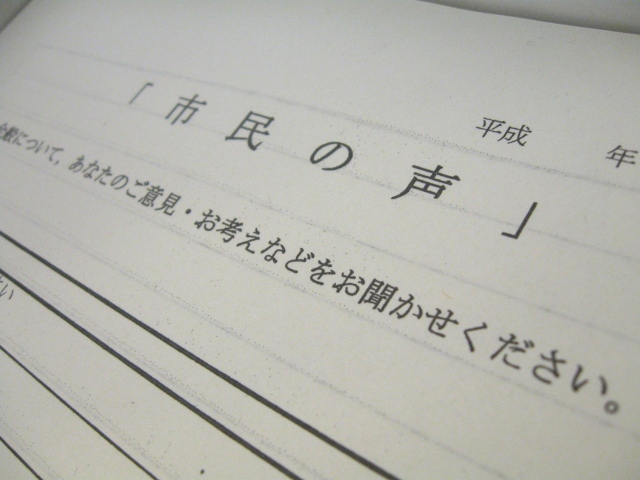 平成　　年
「市民の声」
全般について，あなたのご意見・お考えなどをお聞かせください。